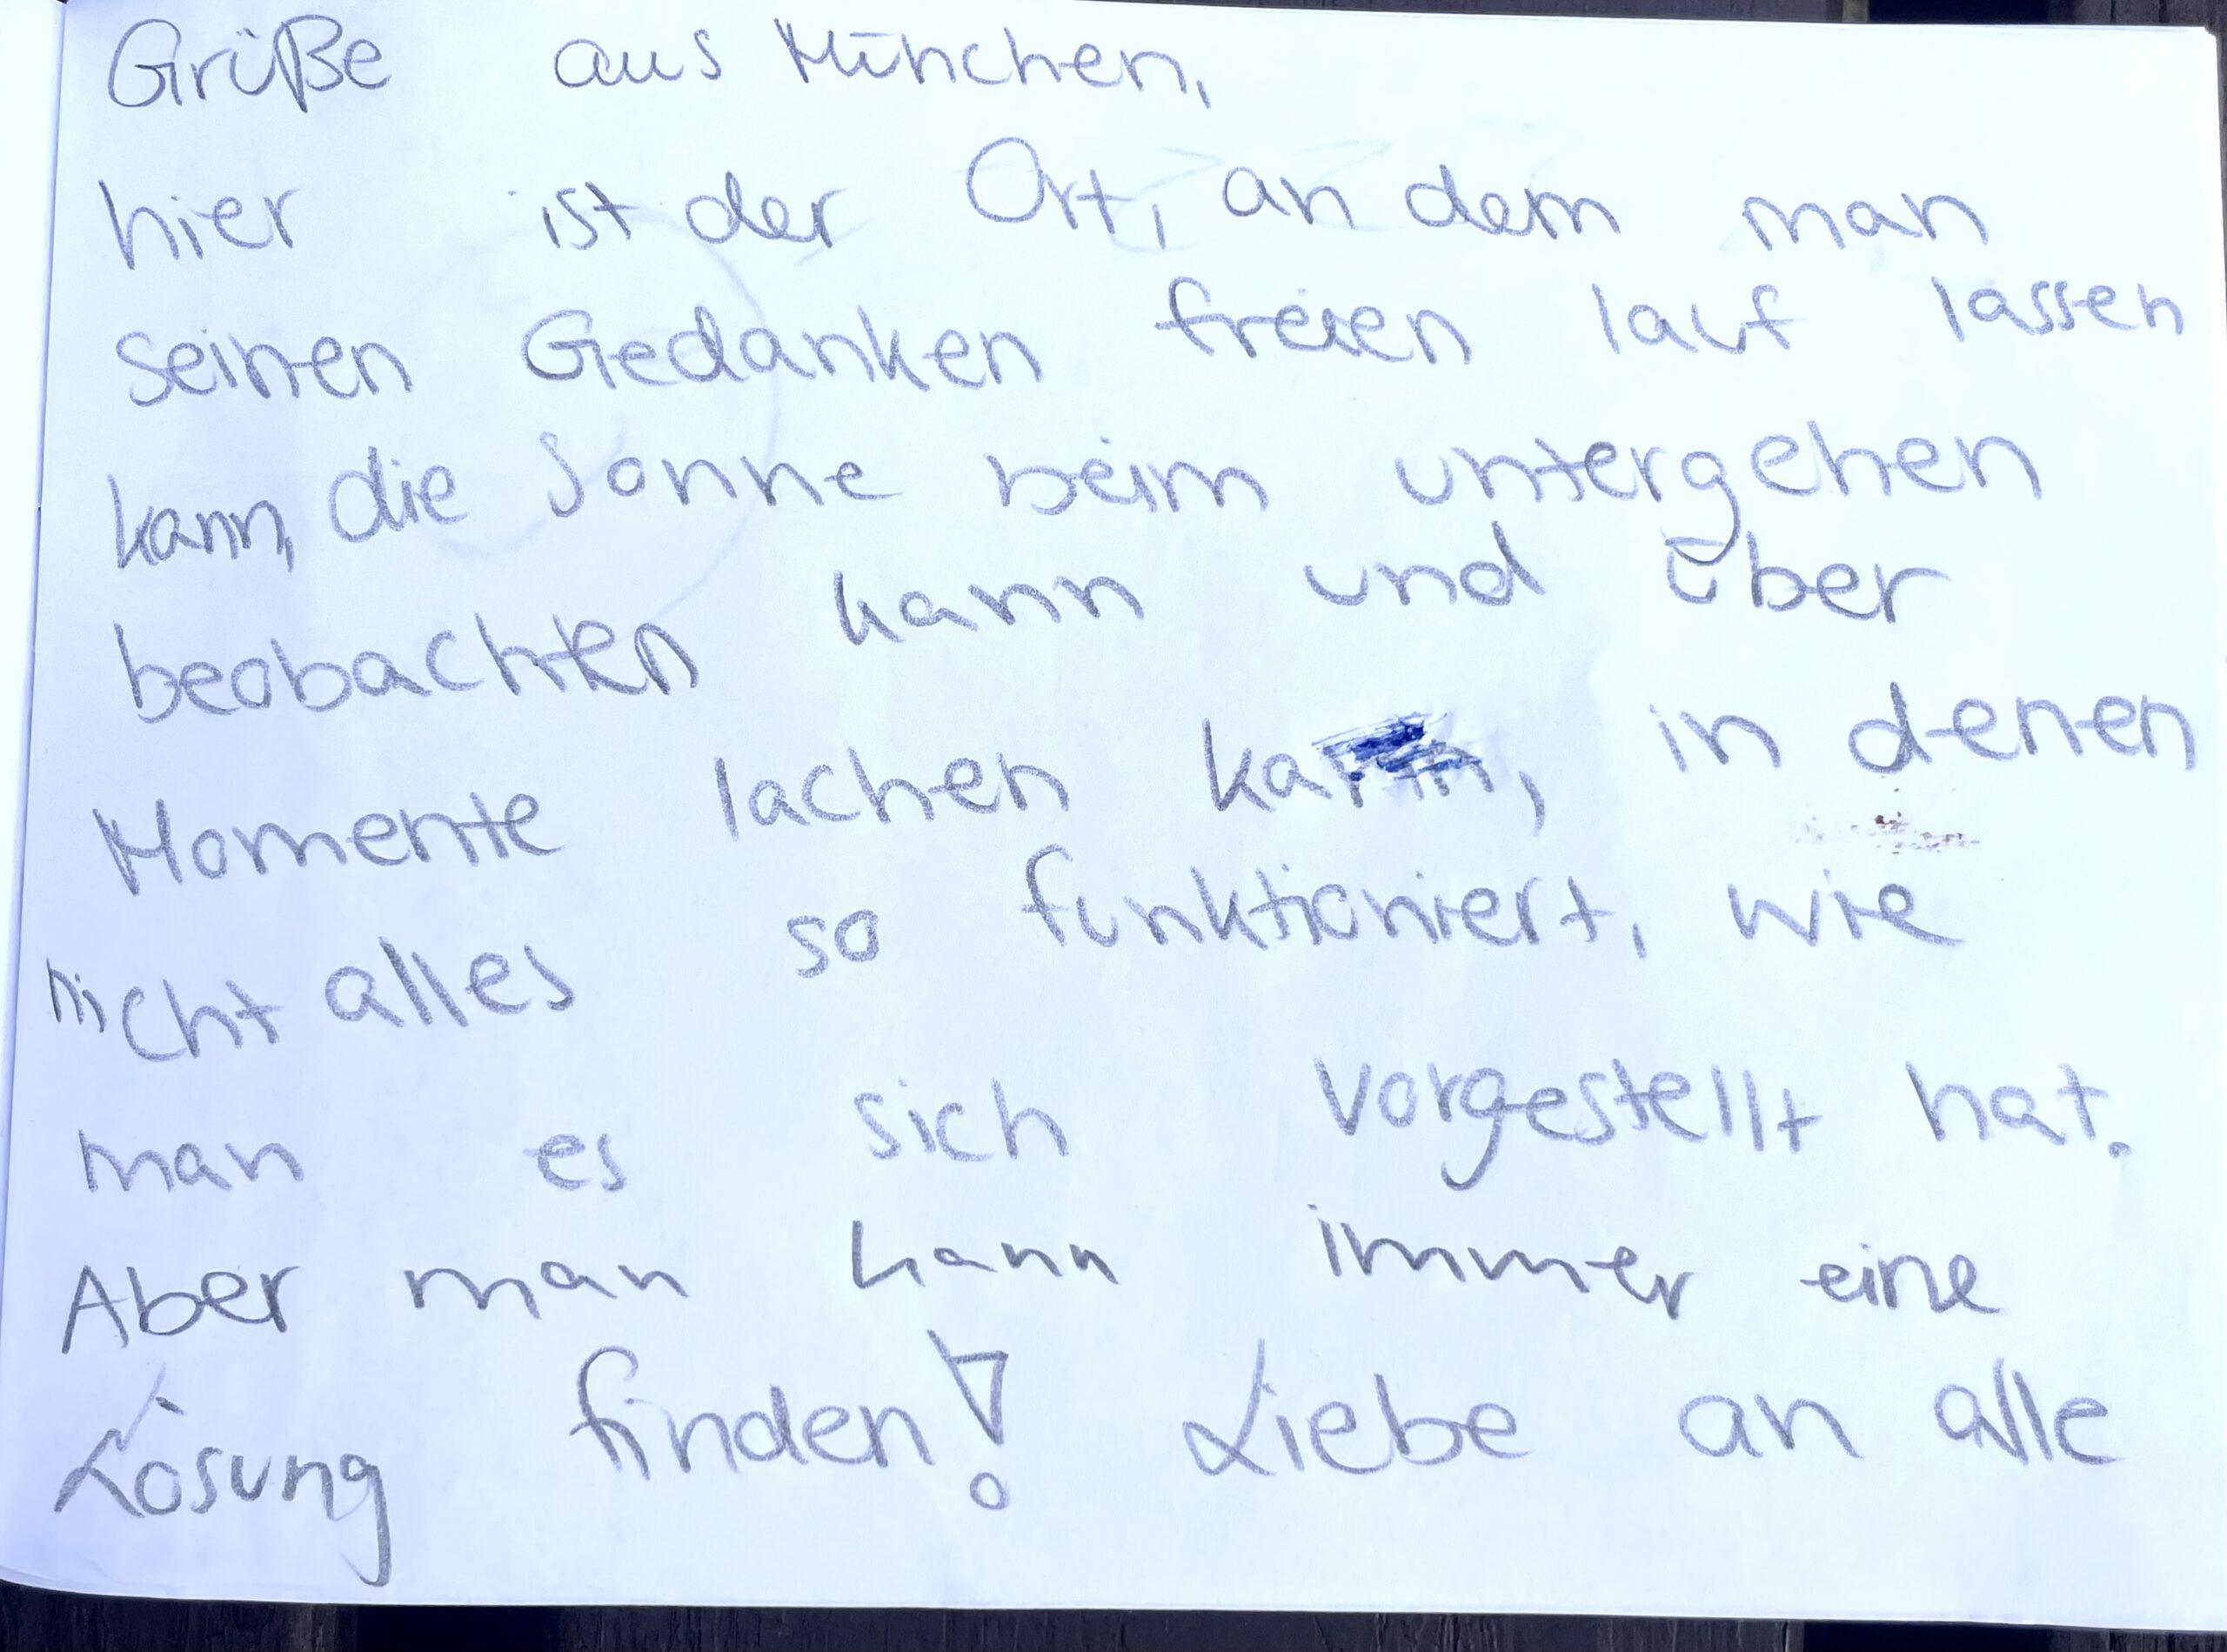 Grüße aus München,
hier ist der Ort, an dem man
seinen Gedanken freien lauf lassen
kann, die Sonne beim untergehen
beobachten kann und über
Momente lachen kann, in denen
nicht alles so funktioniert, wie
man es sich vorgestellt hat.
Aber man kann immer eine
Lösung finden! Liebe an alle